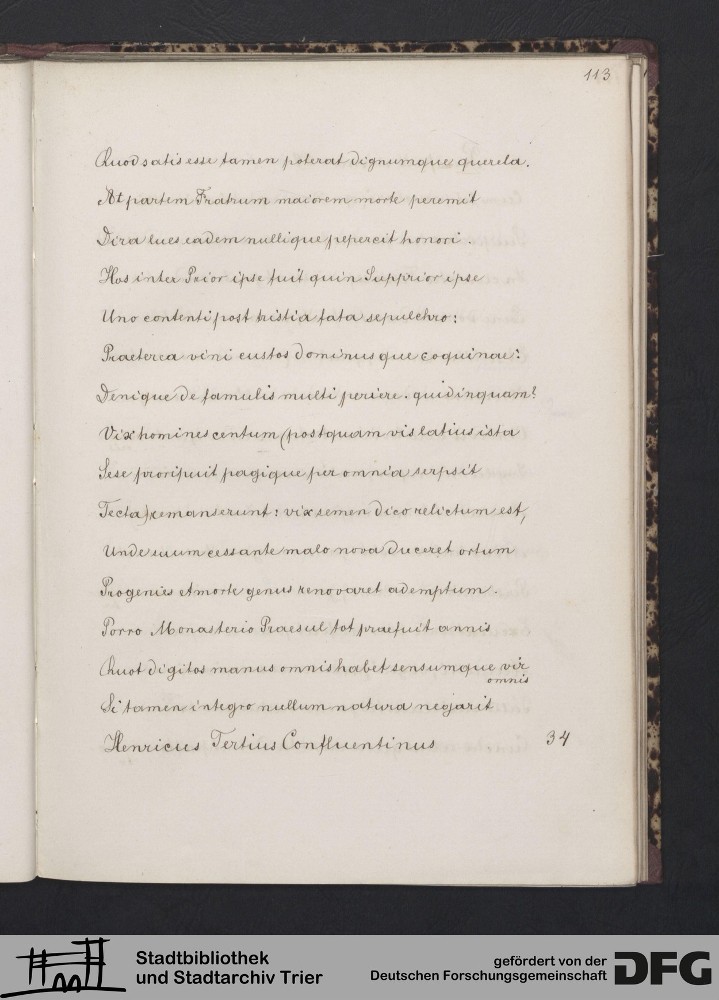 113
Quod satis esse tamen poterat dignumque querela.
At partem Fratrum maiorem morte peremit
Dira lues eadem nullique pepercit honori.
Hos inter Prior ipse fuit quin Supprior ipse
Uno contenti post tristia fata sepulchro:
Praeterea vini custos dominusque coquinae:
Denique de famulis multi periere. quid inquam?
Vix homines centum (postquam vis latius ista
Sese proripuit pagique per omnia serpsit
Tecta) remanserunt: vix semen dico relictum est,
Unde suum cessante malo nova duceret ortum
Progenies et morte genus renovaret ademptum.
Porro Monasterio Praesul tot praefuit annis
Quot digitos manus omnis habet sensumque vir
omnis
Si tamen integro nullum natura negarit
Henricus Tertius Confluentinus 34
Stadtbibliothek
und Stadtarchiv Trier
gefördert von der
Deutschen Forschungsgemeinschaft
DFG